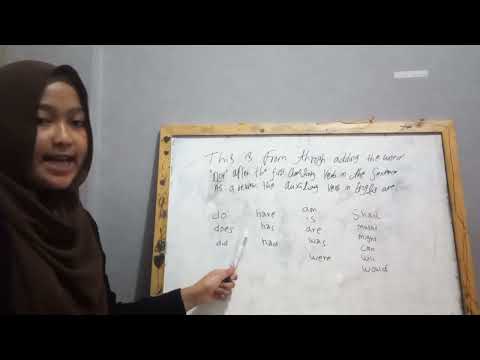 This is from adding the
"Not" after the first verb in the Sentence
As a review the auxiliary verb in are
do have am Shall
does has is
did had are might
was can
were will
would